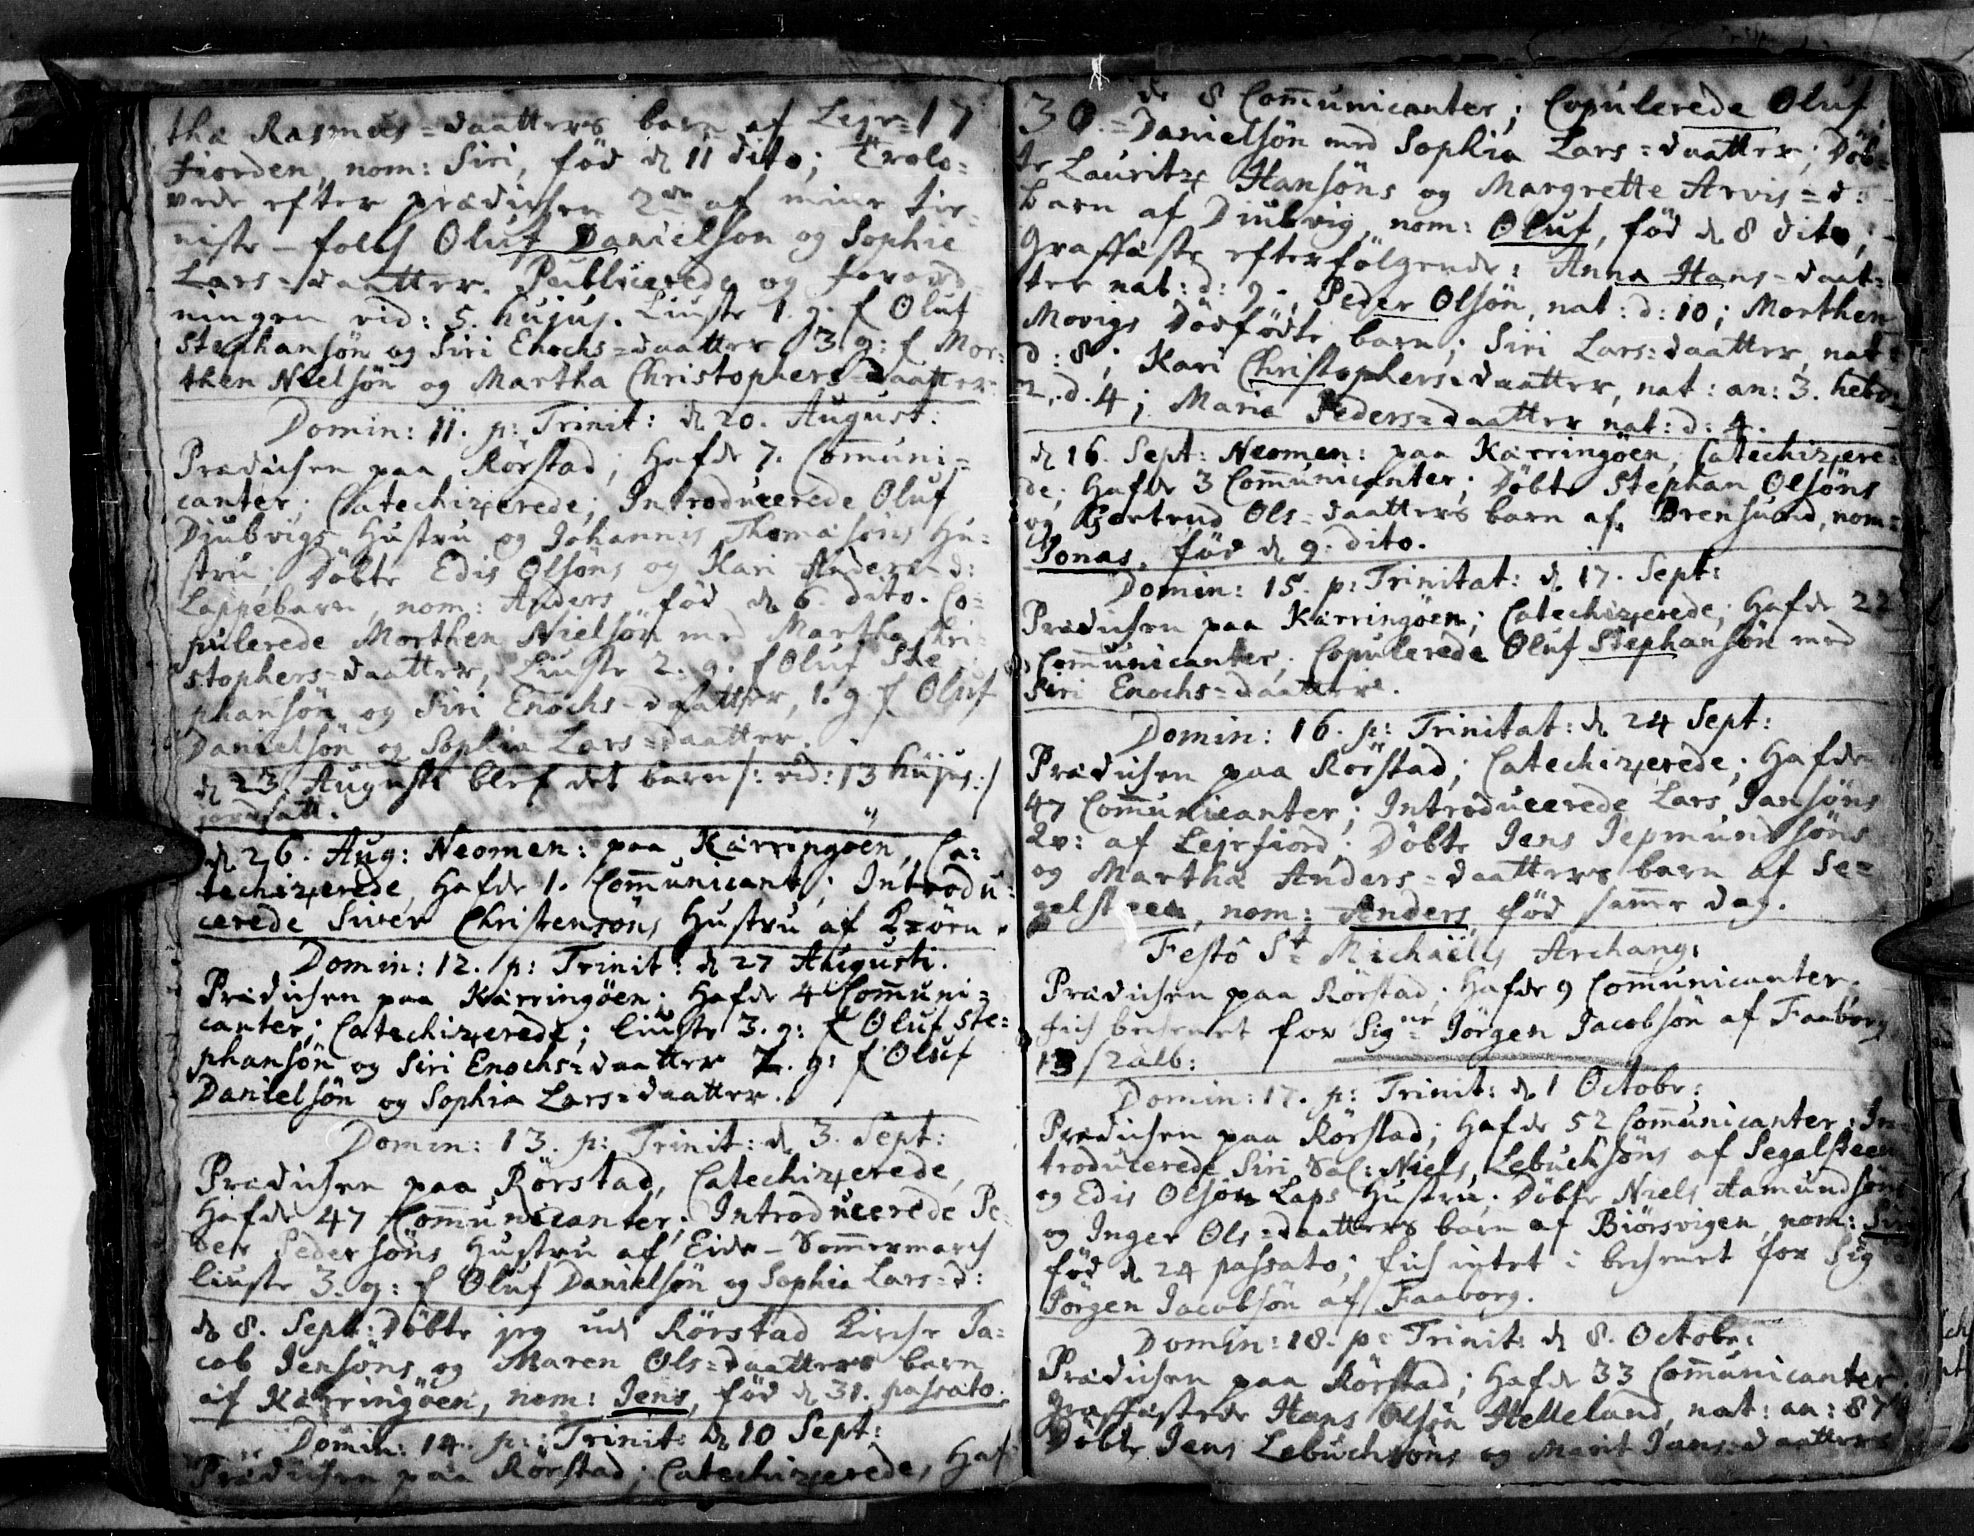 thæ Rasmus=daatters barn af Leer= 17
fiorden, nom: Siri, fød d 11 dito; Trolo=
vede efter prædichen 2de af mine tie=
niste-folch Oluf Danielsøn og Sophie
Lars=daatter. Publicerede og forord
ningen vid: 5. hujus. Liuste 1. g. f Oluf
Stephansøn og Siri Enochs=daatter 3 g: f Mor=
then Nielsøn og Martha Christophers=daatter
Domin: 11. p: Trinit: d 20. August:
Prædichen paa Rørstad; Hafde 7. Com̄uni=
canter; Catechizerede; Introducerede Oluf
Djubvigs Hustru og Johannis Thomasøns Hu=
stru; Døbte Edis Olsøns og Kari Anders=d:
Lappebarn, nom: Anders, fød d 6. dito. Co=
pulerede Morthen Nielsøn med Martha Chri=
stophers=daatter, Liuste 2. g. f Oluf Ste
phansøn og Siri Enochs=daatter, 1. g f Oluf
Danielsøn og Sophia Lars=daatter.
d 23. Augusti blef det barn /: vid: 13 hujus :/
jordsatt.
d 26. Aug: Neomen: paa Kærringøen, Ca=
techizerede, Hafde 1. Com̄unicant; Introdu=
cerede Siver Christensøns Hustru af
Domin: 12. p: Trinit: d 27 Augusti.
Prædichen paa Kærringøen; Hafde 4 Com̄uni=
canter; Catechizerede; liuste 3. g: f Oluf Ste=
phansøn og Siri Enochs=daatter 2. g: f Oluf
Danielsøn og Sophia Lars=daatter.
Domin: 13. p: Trinit: d 3. Sept:
Prædichen paa Rørstad, Catechizerede,
Hafde 47 Com̄unicanter; Introducerede Pe=
der Pedersøns Hustru af Eide-Som̄ermarch
liuste 3. g: f Oluf Danielsøn og Sophia Lars=d:
d 8. Sept: Døbte jeg udi Rørstad Kirche Ja=
cob Jensøns og Maren Ols=daatters barn
af Kærringøen, nom: Jens, fød d 31. passato.
Domin: 14. p: Trinit: d 10 Sept:
Prædichen paa Rørstad; Catechizerede, Haf
30. de 8 Com̄unicanter; Copulerede Oluf
Danielsøn med Sophia Lars=daatter; Døb=
te Lauritz Hansøns og Margrette Arvis=d:
barn af Djubvig, nom: Oluf, fød d 8 dito;
Graffæste efterfølgende: Anna Hans=daat=
ter nat: d: 9., Peder Olsøn, nat: d: 10; Morthen
Movigs Dødfødte barn; Siri Lars=daatter nat:
d: 8; Kari Christophers=daatter, nat: an: 3. hebd:
2. d. 4; Maria Peders=daatter nat: d: 4.
d 16. Sept: Neomen: paa Kærringøen, Catechizere=
de; Hafde 3 Com̄unicanter; Døbte Stephan Olsøns
og Giertrud Ols=daatters barn af Brensund, nom:
Jonas, fød d 9. dito.
Domin: 15. p: Trinitat: d 17. Sept:
Prædichen paa Kærringøen; Catechizerede; Hafde 22
Com̄unicanter; Copulerede Oluf Stephansøn med
Siri Enochs=daatter.
Domin: 16. p: Trinitat: d 24 Sept:
Prædichen paa Rørstad; Catechizerede; Hafde
47 Com̄unicanter; Introducerede Lars Jansøns
Qv: af Leirfiord; Døbte Jens Jepmundsøns
og Martha Anders=daatters barn af Se=
gelsteen, nom: Anders, fød sam̄e dag.
Festô St Michaëlis Archang:
Prædichen paa Rørstad; Hafde 9 Com̄unicanter.
fich bechemet for Sigr Jørgen Jacobsøn af Faaborg
Domin: 17. p: Trinit: d 1 Octobr:
Prædichen paa Rørstad; Hafde 52 Com̄unicanter; In=
troducerede Siri Sal: Niels Lebuchsøns af Segelsteen
og Edis Olsøn Laps Hustru; Døbte Niels Aamundsøns
og Inger Ols=daatters barn af Biørsvigen, nom: Siri
fød d 24 passato; fich intet i bechemet for Sig
Jørgen Jacobsøn af Faaborg.
Domin: 18. p: Trinit: d 8. Octobr:
Prædichen paa Rørstad; Hafde 33 Com̄unicanter.
Graffæstede Hans Olsøn Helleland, nat: an: 87
Døbte Jens Lebuchsøns og Marit Jans=daatters